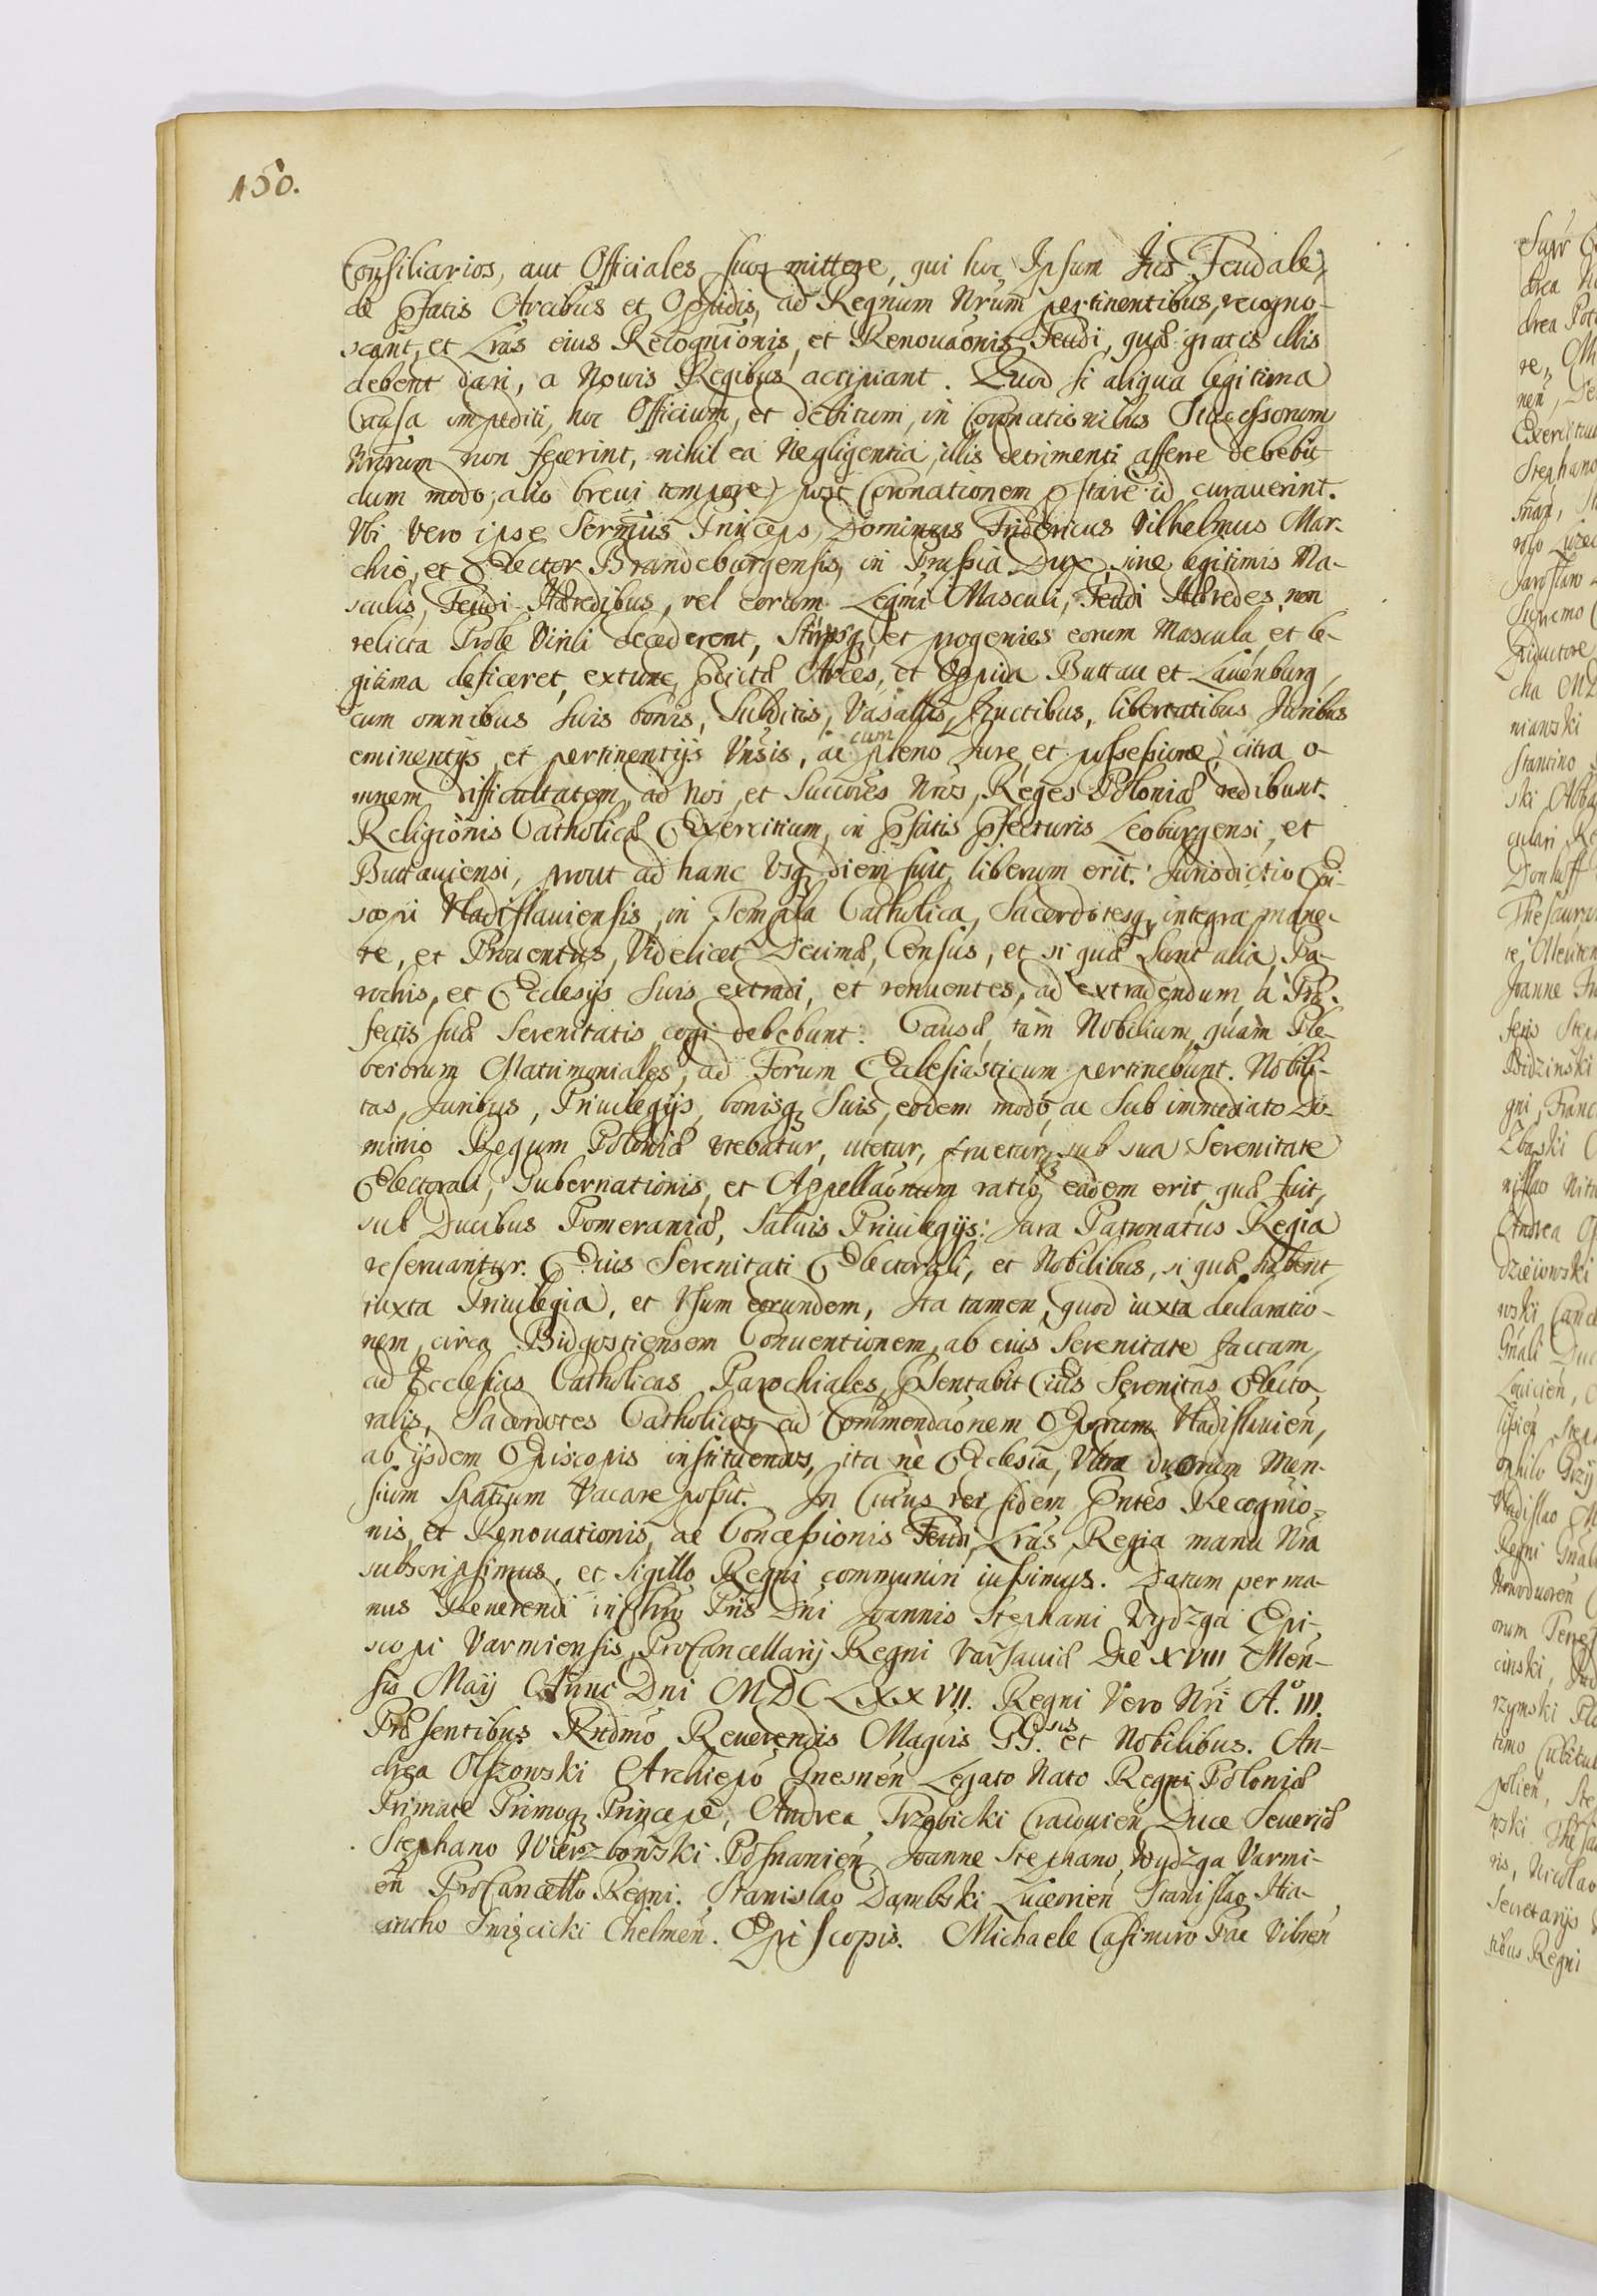 150.
Consiliarios, aut Officiales suos mittere, qui hoc Ipsum Jus Feudale,
de Pfatis Arcibus et Oppidis, ad Regnum Nrum pertinentibus, recogno-
scant, et Lras eius Recognionis, et Renouaonis Feudi, quæ gratis illis
debent dari, a Nouis Regibus accipiant. Quod si aliqua legitima
Causa impediti, hoc Officium, et debitum, in Coronationibus Successorum
Nrorum non fecerint, nihil ea Negligentia, illis detrimenti afferre debebit
dum modo, alio breui tempore, post Coronationem pstare id curauerint.
Vbi vero ipse Sermus Princeps, Dominus Fridericus Vilhelmus Mar-
chio, et Elector Brandeburgensis, in Prussia Dux, sine legitimis Ma-
sculis, Feudi Hæredibus, vel eorum Legmi Masculi, Feudi Hæredes, non
relicta Prole Virili decederent, Stirpsq, et progenies eorum Mascula, et le-
gitima deficeret, extunc pdictæ Arces, et Oppida Buttau et Lauenburg,
cum omnibus suis bonis, Subditis, Vasallis, Fructibus, libertatibus Juribus
eminentijs et pertinentijs Vnsis, ac cum pleno Jure, et possessione, citra o-
mnem difficultatem, ad Nos, et Succores Nros, Reges Poloniæ redibunt.
Religionis Catholicæ Exercitium, in Pfatis Pfecturis Leoburgensi, et
Buttauiensi, prout ad hanc Vsq diem fuit, liberum erit. Jurisdictio Epi-
scopi Vladislauiensis, in Templa Catholica, Sacerdotesq, integra mane-
re, et Prouentus, Videlicet Decimæ, Census, et si quæ sunt alia, Pa-
rochis, et Eclesijs Suis extradi, et renuentes, ad extradendum a Præ-
fectis suæ Serenitatis cogi debebunt. Causæ, tam Nobilium, quam Ple-
beiorum Matrimoniales, ad Forum Eclesiasticum pertinebunt. Nobili-
tas, Juribus, Priuilegijs, bonisq Suis, eodem modo, ac Sub immediato Do-
minio Regum Poloniæ vtebatur, utetur, fruetur, sub sua Serenitate
Electorali, Gubernationis, et Appellaonum ratio, eadem erit, quæ fuit,
sub Ducibus Pomeraniæ, Saluis Priuilegijs: Jura Patronatus Regia
reseruantur. Eius Serenitati Electorali, et Nobilibus, si quæ habent,
iuxta Priuilegia, et Vsum eorundem, Ita tamen, quod iuxta declaratio-
nem, circa Bidgostiensem Conuentionem, ab eius Serenitate factam,
ad Ecclesias Catholicas Parochiales, Psentabit Eius Serenitas Electo-
ralis, Sacerdotes Catholicos, ad Commendaonem Eporum Vladislauien,
ab ijsdem Episcopis instituendos, ita ne Eclesia, Vltra duorum Men-
sium Spatium Vacare possit. In Cuius rei fidem Pntes Recognio-
nis, et Renouationis, ac Concessionis Feudi, Lras, Regia manu Nra
subscripsimus, et Sigillo Regni communiri iussimus. Datum per ma-
nus Reuerendi in Chro Pris Dni Joannis Stephani Wydzga Epi-
scopi Varmiensis, ProCancellarij Regni Varsauiæ Die XVIII Men-
sis Maij Anno Dni MDCLXXVII. Regni Vero Nri A.º III.
Præsentibus Rndmo, Reuerendis Magcis GG.sis et Nobilibus. An-
drea Olszowski Archiepo Gnesnen Legato Nato Regni Poloniæ
Primate Primoq Principe, Andrea Trzebicki Cracouien, Duce Seueriæ
Stephano Wierzbowski Posnanien, Joanne Stephano Wydzga Varmi-
en ProCancello Regni. Stanislao Dąmbski Luceorien Stanislao Hia-
cintho Swięcicki Chelmen. Episcopis. Michaele Casimiro Pac Vilnen